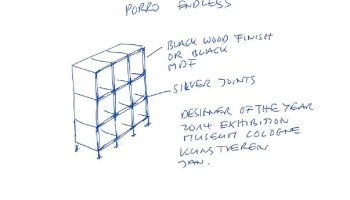 PORRO ENDLESS
BLACK WOOD FINISH
OR BLACK
MDF
SILVER JOINTS
DESIGNER OF THE YEAR
2014 EXHIBITION
MUSEUM COLOGNE
KUNSTVEREIN
JAN.